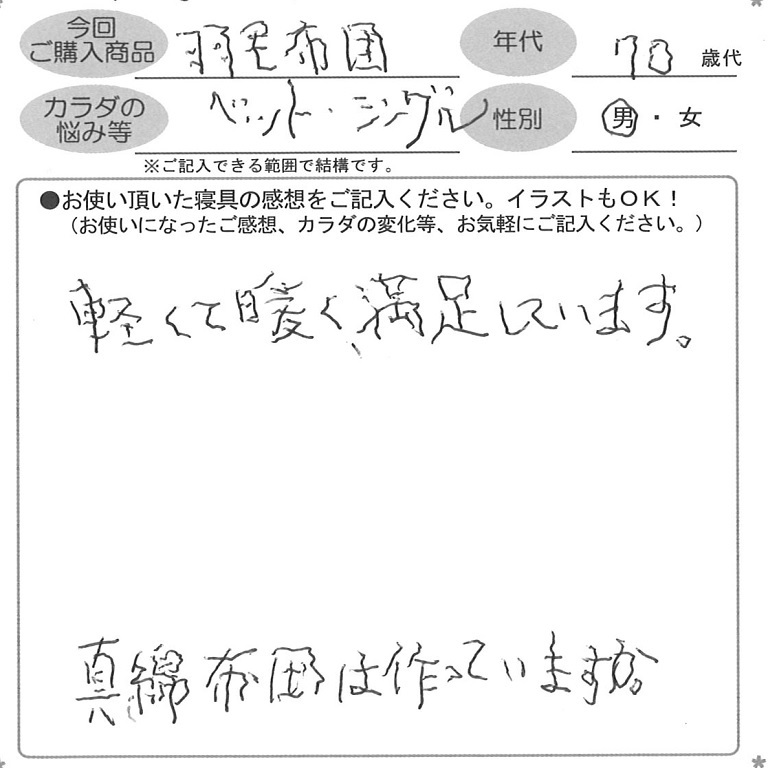 今回
ご購入商品
羽毛布団
年代
70 歳代
カラダの
悩み等
ベット・シングル
性別
男・女
※ご記入できる範囲で結構です。
●お使い頂いた寝具の感想をご記入ください。イラストもOK!
(お使いになったご感想、カラダの変化等、お気軽にご記入ください。)
軽くて暖く、満足しています。
真綿布団は作っていますか。